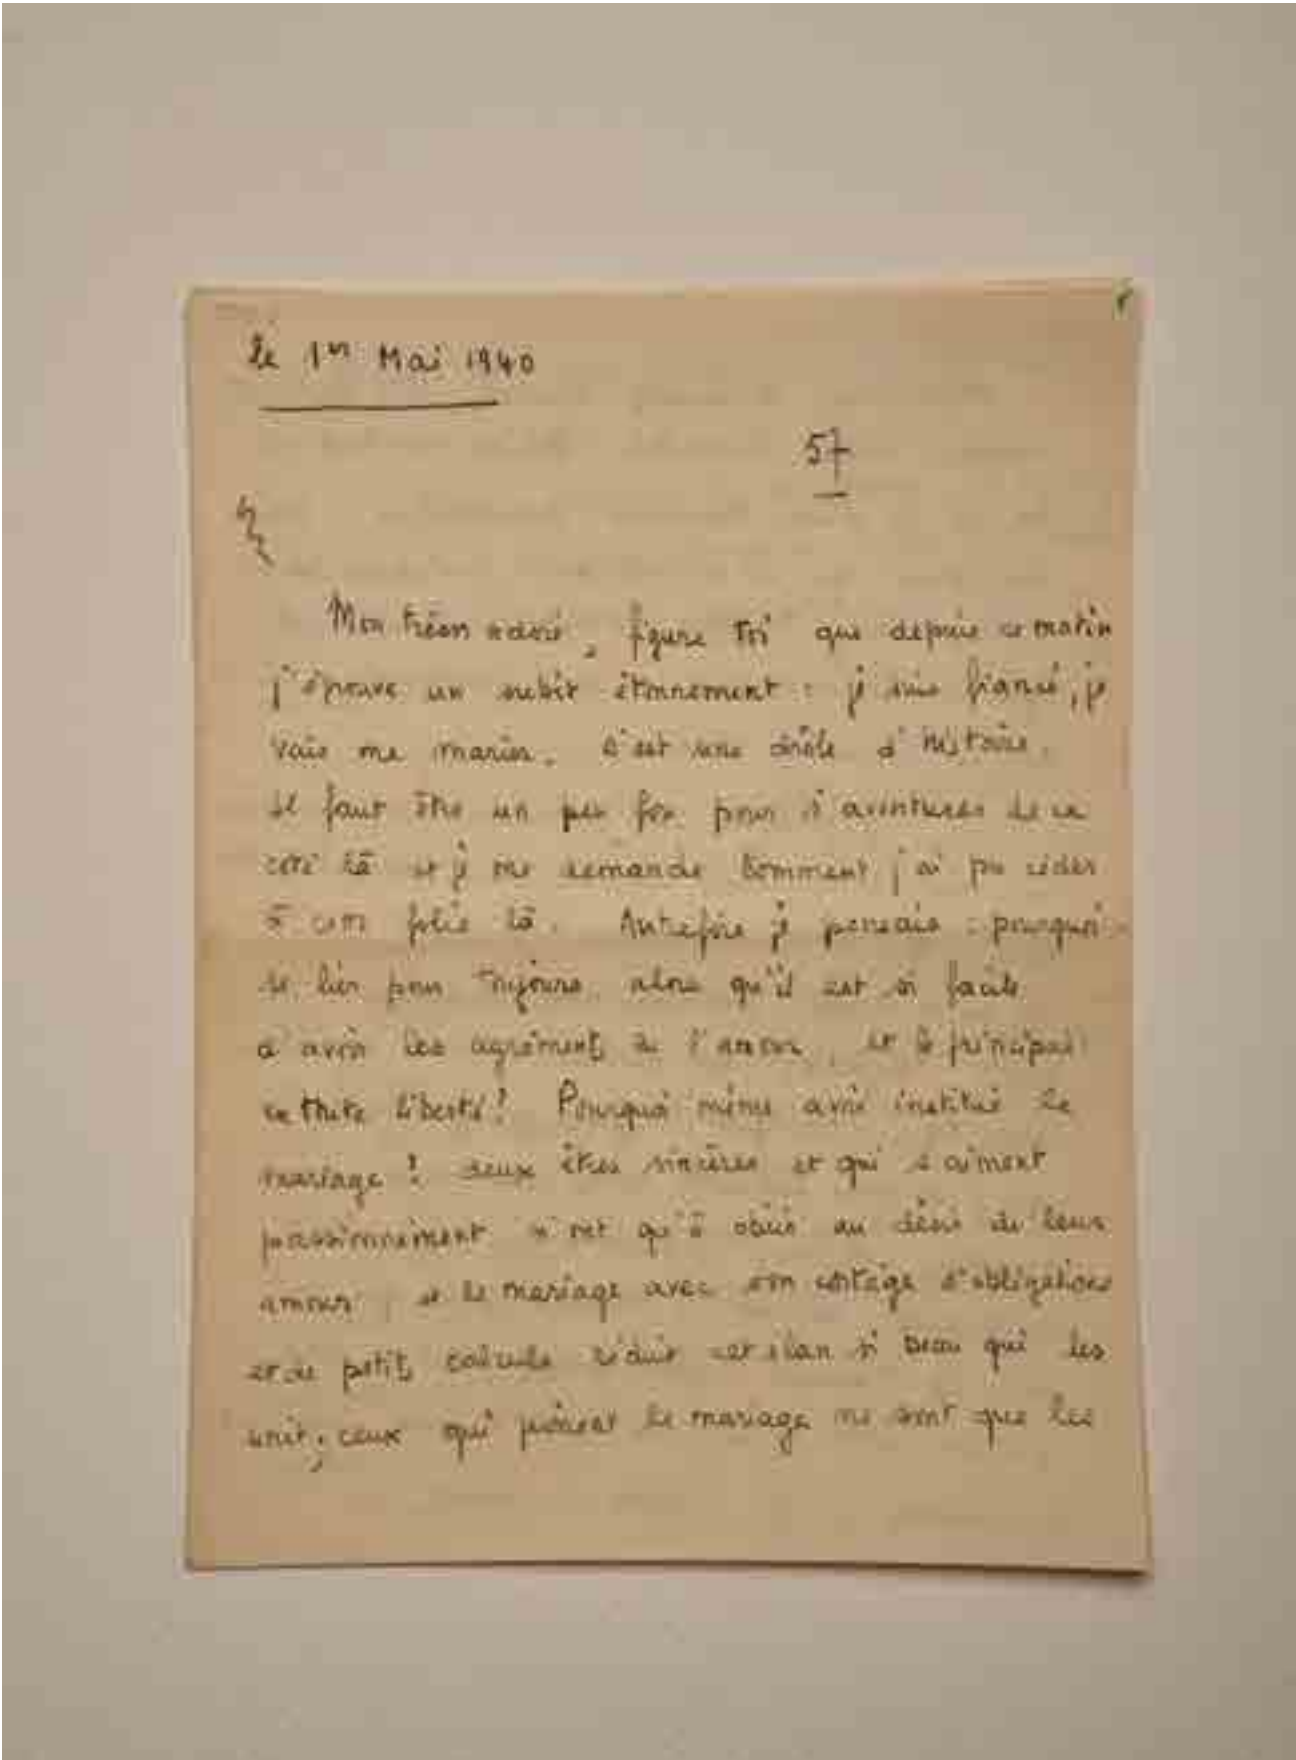 le 1er Mai 1940
57
Mon trésor adoré, figure toi que depuis ce matin
j'éprouve un subit étonnement : je suis fiancé, je
vais me marier. C'est une drôle d'histoire.
Il faut être un peu fou pour s'aventurer de ce
côté là et je me demande comment j'ai pu céder
à cette folie là. Autrefois je pensais : pourquoi
se lier pour toujours alors qu'il est si facile
d'avoir les agréments de l'amour, et le principal :
cette liberté! Pourquoi même avoir institué le
mariage? deux êtres sincères et qui s'aiment
passionnément n'ont qu'à obéir au désir de leur
amour, et le mariage avec son cortège d'obligations
et de petits calculs réduit cet élan si beau qui les
unit; ceux qui prônent le mariage ne sont que les